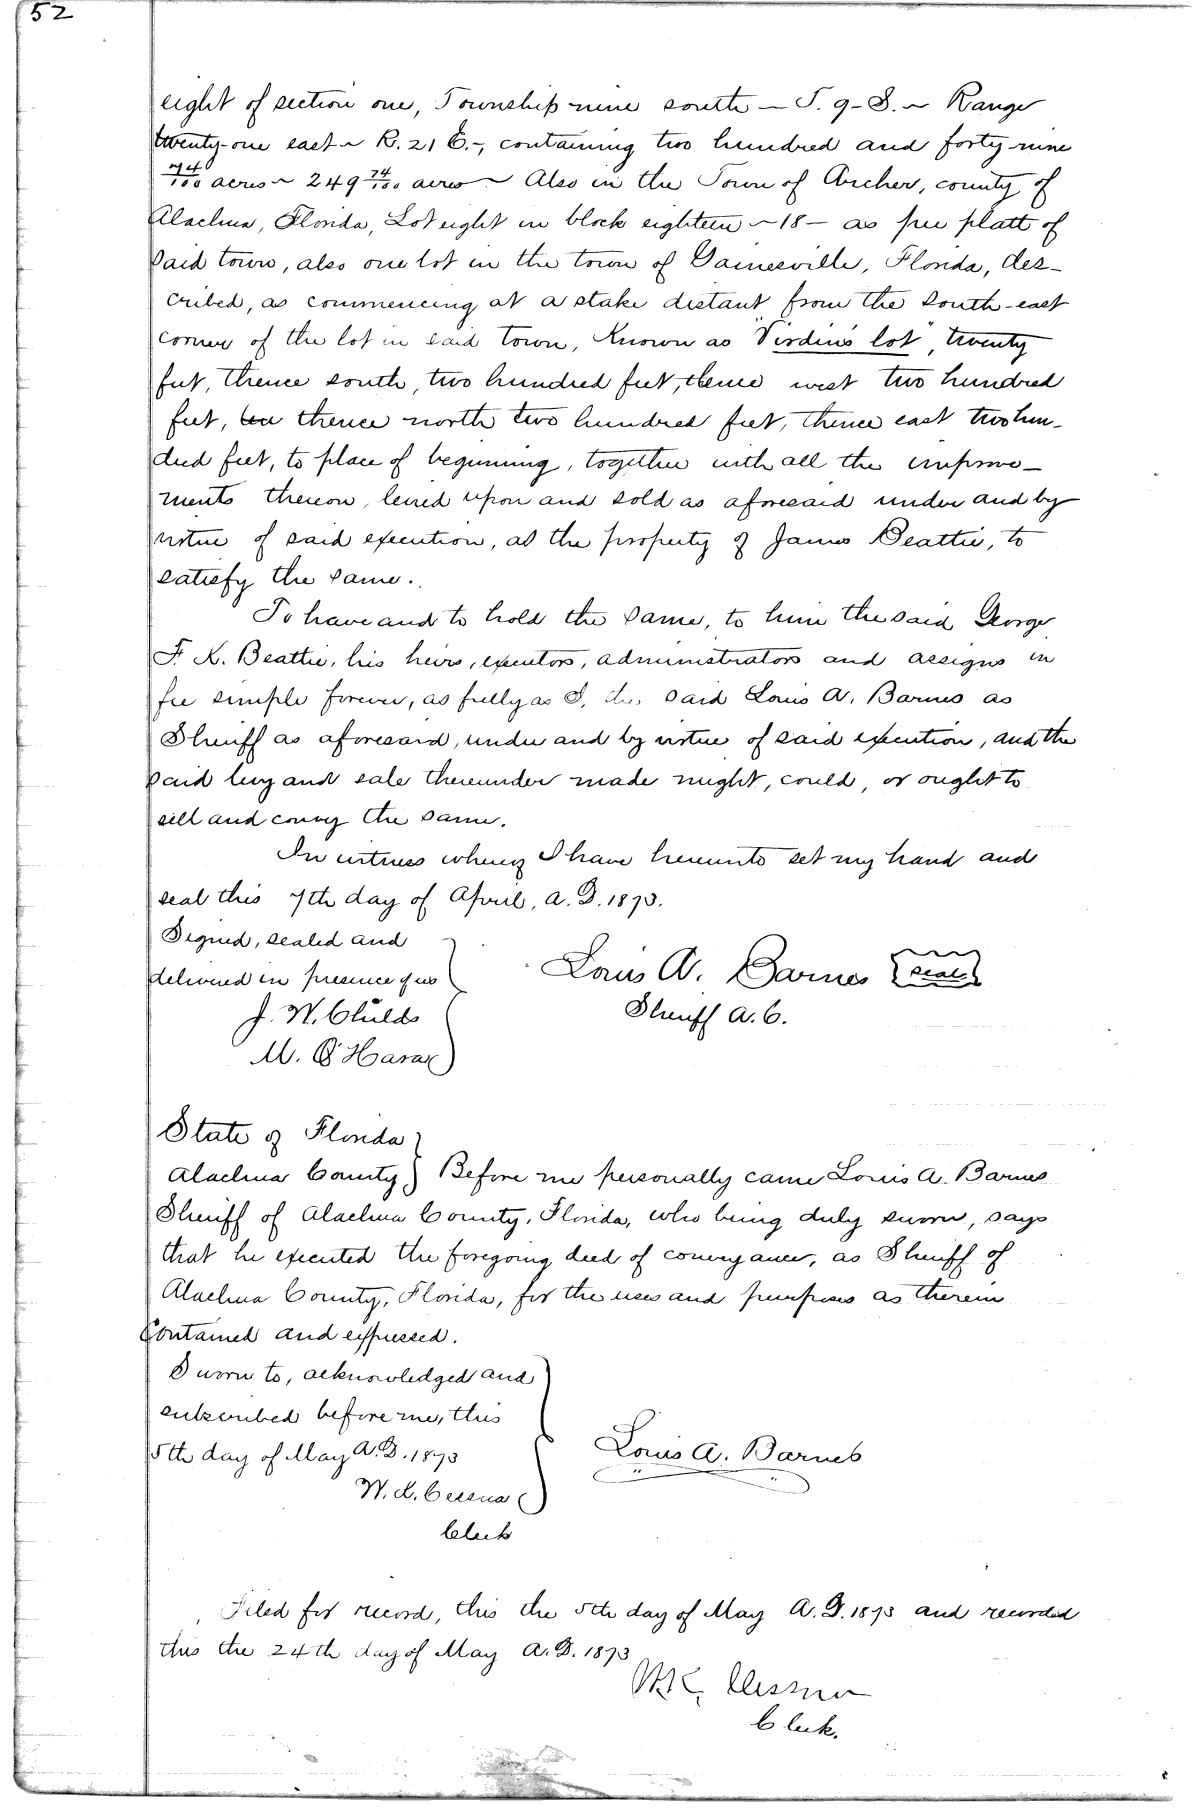 52
eight of section one, Township nine south — T. 9 – S. ~ Range
twenty-one east ~ R. 21 E. –, containing two hundred and forty-nine
74/100 acres ~ 249 74/100 acres ~ Also in the Town of Archer, county of
Alachua, Florida, Lot eight in block eighteen ~ 18 — as per platt of
said town, also one lot in the town of Gainesville, Florida, des-
cribed, as commencing at a stake distant from the south-east
corner of the lot in said town, Known as "Virdin's lot", twenty
feet, thence south, two hundred feet, thence west two hundred
feet, thence north two hundred feet, thence east two hun-
dred feet, to place of beginning, together with all the improve-
ments thereon, levied upon and sold as aforesaid under and by
virtue of said execution, as the property of James Beattie, to
satisfy the same.
To have and to hold the same, to him the said George
F. K. Beattie, his heirs, executors, administrators and assigns in
fee simple forever, as fully as I, the said Louis A. Barnes as
Sheriff as aforesaid, under and by virtue of said execution, and the
said levy and sale thereunder made might, could, or ought to
sell and convey the same.
In witness whereof I have hereunto set my hand and
seal this 7th day of April, A. D. 1873.
Signed, sealed and
delivered in presence of us
Louis A. Barnes seal
J. W. Childs
Sheriff A. C.
M. O'Hara
State of Florida
Alachua County } Before me personally came Louis A. Barnes
Sheriff of Alachua County, Florida, who being duly sworn, says
that he executed the foregoing deed of conveyance, as Sheriff of
Alachua County, Florida, for the uses and purposes as therein
contained and expressed.
Sworn to, acknowledged and
subscribed before me, this
5th day of May A. D. 1873
Louis A. Barnes
W. K. Cessna
Clerk
Filed for record, this the 5th day of May A. D. 1873 and recorded
this the 24th day of May A. D. 1873
W. K. Cessna
Clerk.